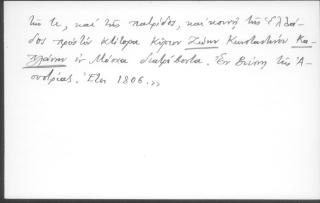 τῆς τε, καὶ τῆς πατρίδος, καὶ κοινῇ τῆς Ἑλλά-
δος πρῶτον κτίτορα Κύριον Ζώην Κωνσταντίνου Κα-
πλάνην ἐν Μόσκᾳ διατρίβοντα. Ἐν Βιέννῃ τῆς Ἀ-
ουστρίας. Ἔτει 1806.»